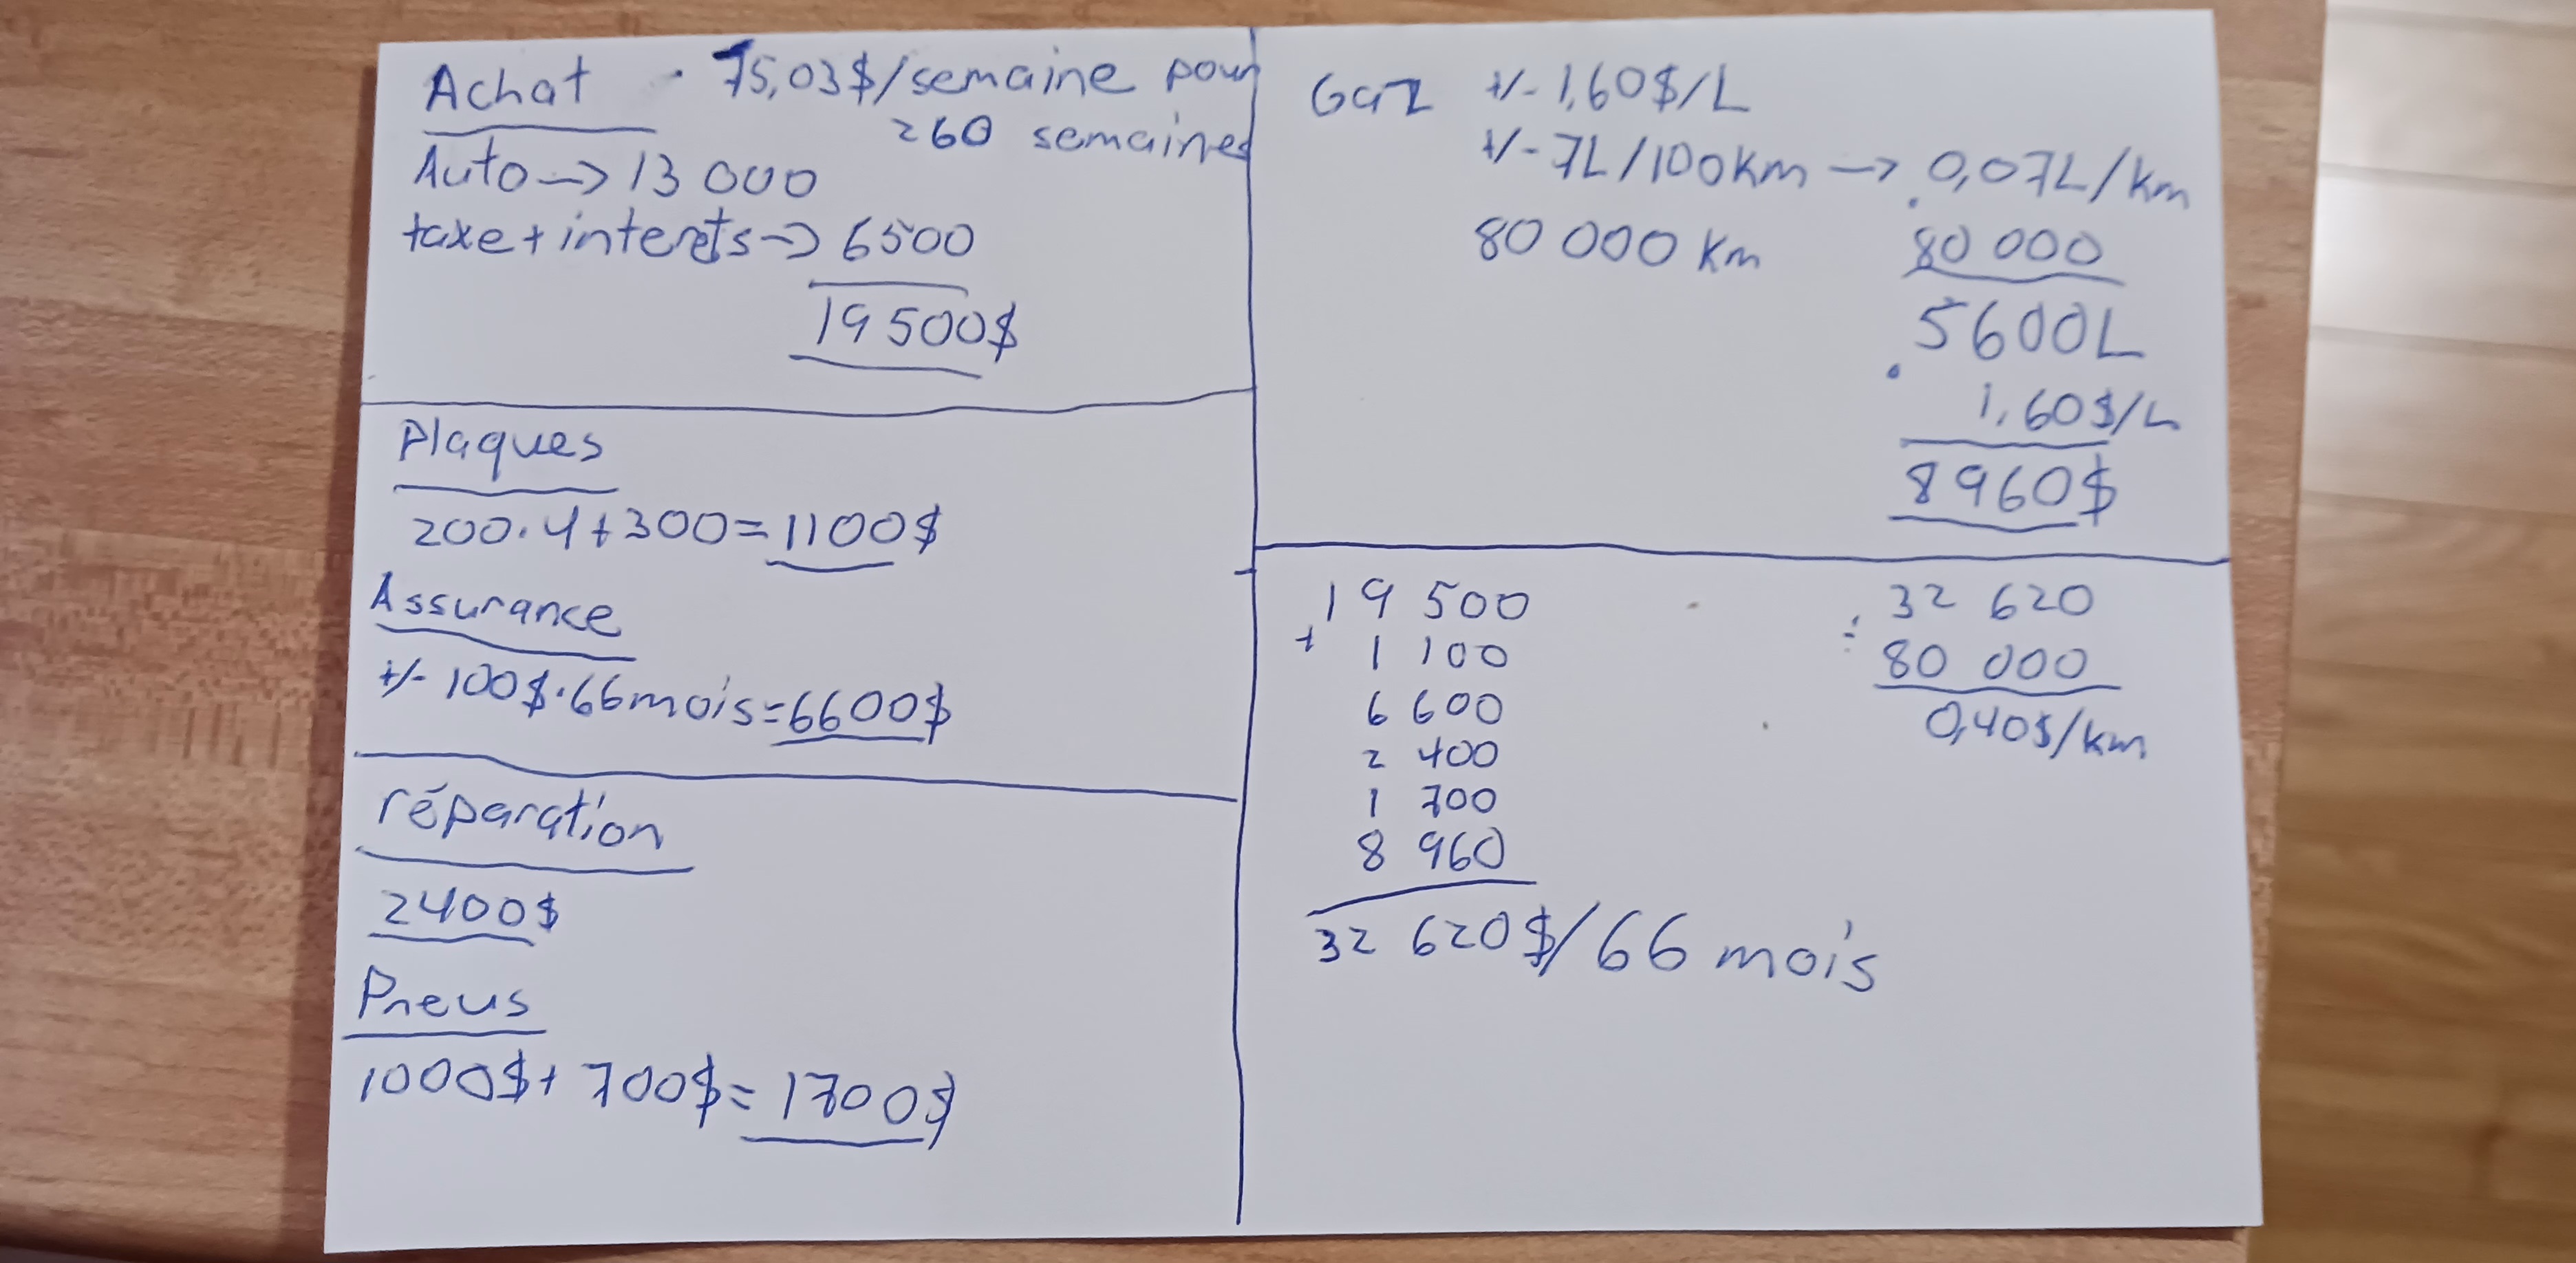 Achat 75,03$/semaine pour
260 semaines
Auto → 13 000
taxe + interets → 6500
19 500$
Plaques
200.4+300=1100$
Assurance
+/- 100$.66mois=6600$
réparation
2400$
Pneus
1000$+700$=1700$
Gaz +/- 1,60$/L
+/- 7L/100km → 0,07L/km
80 000 km . 80 000
5600L
. 1,60$/L
8960$
19 500
+ 1 100
6 600
2 400
1 700
8 960
32 620$/66 mois
32 620
÷ 80 000
0,40$/km